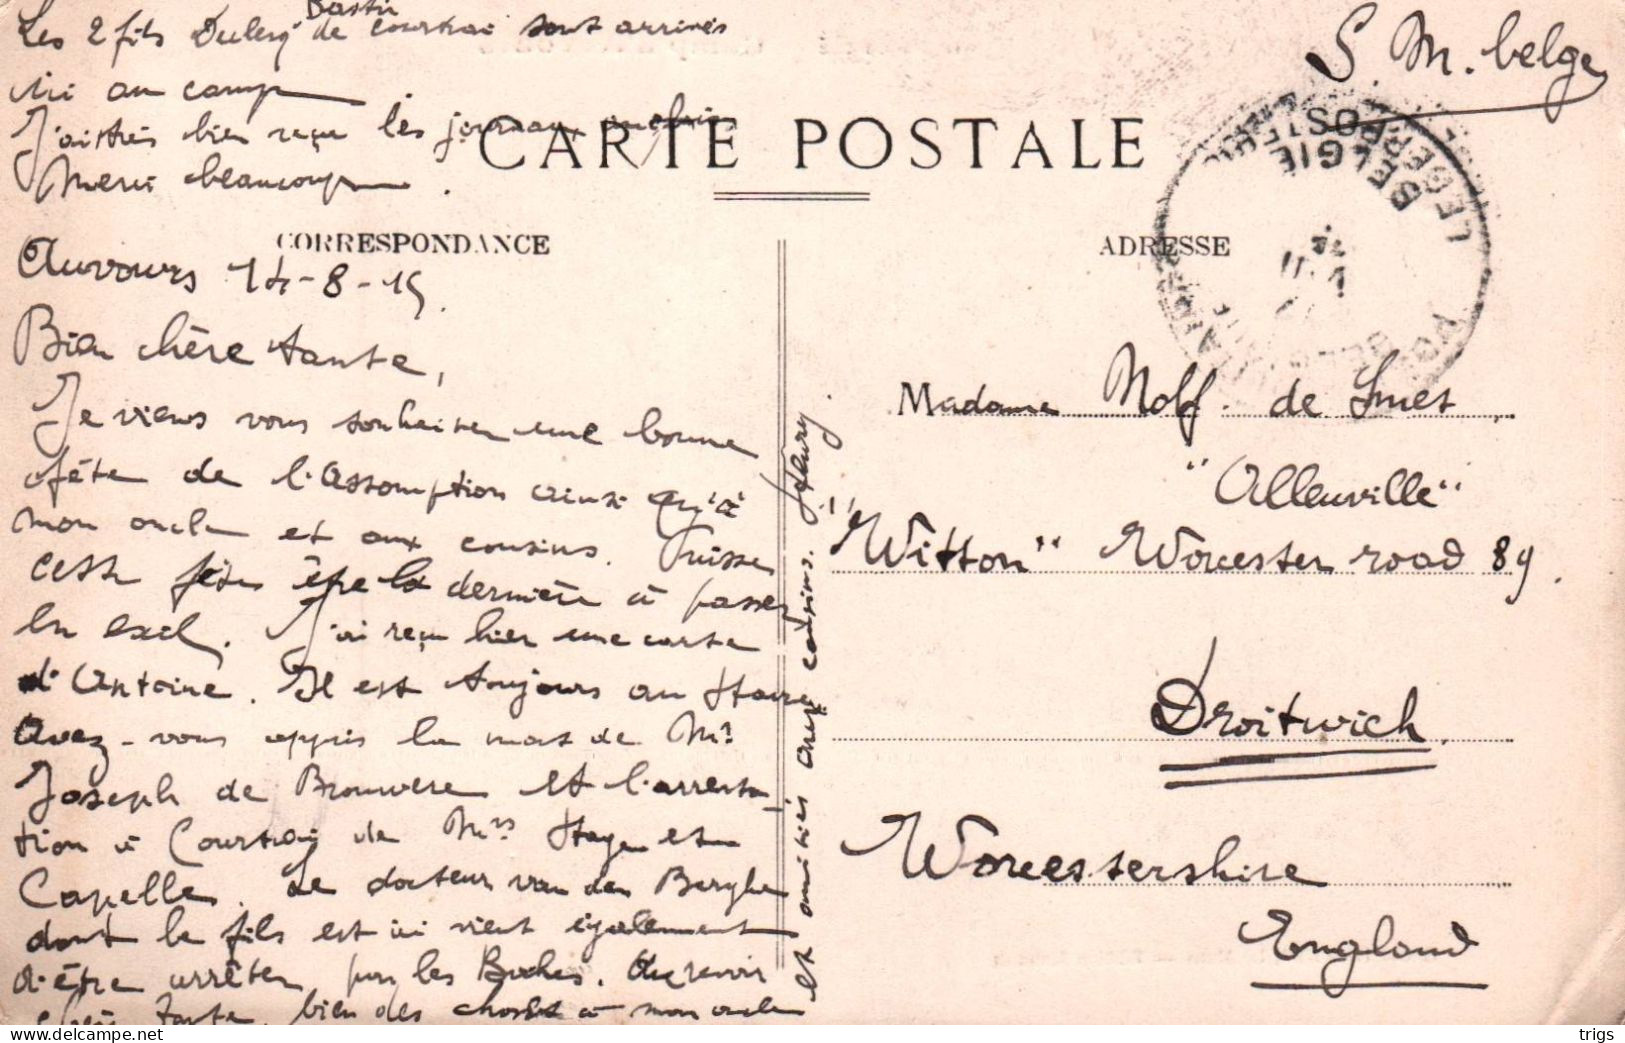 Bastin
Les 2 fils de Courtrai sont arrivés
ici au camp
J'ai très bien reçu les journaux
Merci beaucoup.
S. M. belge
CARTE POSTALE
CORRESPONDANCE
ADRESSE
BELGIE
POSTE
Auvours 14-8-15.
Bien chère tante,
Je viens vous souhaiter une bonne
fête de l'Assomption ainsi qu'à
mon oncle et aux cousins. Puisse
cette fête être la dernière à passer
en exil. J'ai reçu hier une carte
d'Antoine. Il est toujours au Havre
Avez-vous appris la mort de Mr
Joseph de Brouwere et l'arresta-
tion à Courtrai de Mrs et
Capelle. Le docteur van den Berghe
dont le fils est ici vient également
d'être arrêté par les Boches. Au revoir
chère tante, bien des choses à mon oncle
et amitiés aux cousins. Fleury.
Madame Nolf. de Smet
"Alleuville"
"Witton" Worcester road 89.
Droitwich
Worcestershire
England
trigs